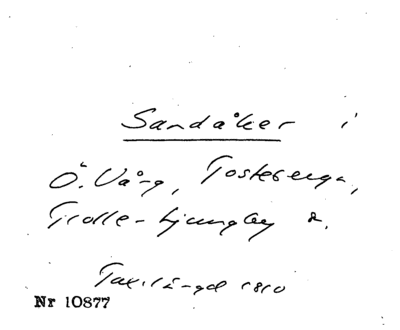 Sandåker i
Ö. Vång, Tosteberga,
Trolle-Ljungby &.
Tax.längd 1810
Nr 10877